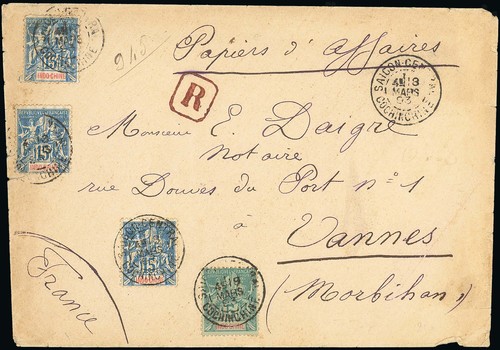 Papiers d'affaires
945
R
SAIGON-CENTRAL
1
MARS
93
COCHINCHINE
Monsieur E. Daigre
Notaire
rue Douves du Port n° 1
à
Vannes
(Morbihan)
France
15
INDO-CHINE
15
15